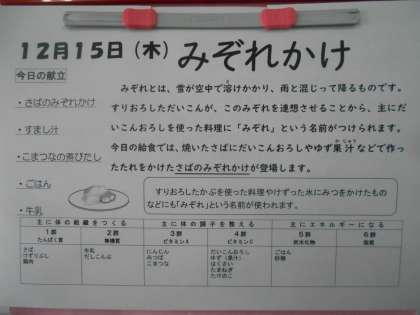 12月15日（木）みぞれかけ
今日の献立
・さばのみぞれかけ
・すまし汁
・こまつなの煮びたし
・ごはん
・牛乳
みぞれとは、雪が空中で溶けかかり、雨と混じって降るものです。
すりおろしただいこんが、このみぞれを連想させることから、主にだ
いこんおろしを使った料理に「みぞれ」という名前がつけられます。
今日の給食では、焼いたさばにだいこんおろしやゆず果汁などで作っ
たたれをかけたさばのみぞれかけが登場します。
すりおろしたかぶを使った料理やけずった氷にみつをかけたもの
などにも「みぞれ」という名前が使われます。
主に体の組織をつくる 主に体の調子を整える 主にエネルギーになる
1群 2群 3群 4群 5群 6群
たんぱく質 無機質 ビタミンA ビタミンC 炭水化物 脂質
さば 牛乳 にんじん だいこんおろし ごはん
けずりぶし だしこんぶ みつば ゆず（果汁） 砂糖
鶏肉 こまつな はくさい
たまねぎ
たけのこ